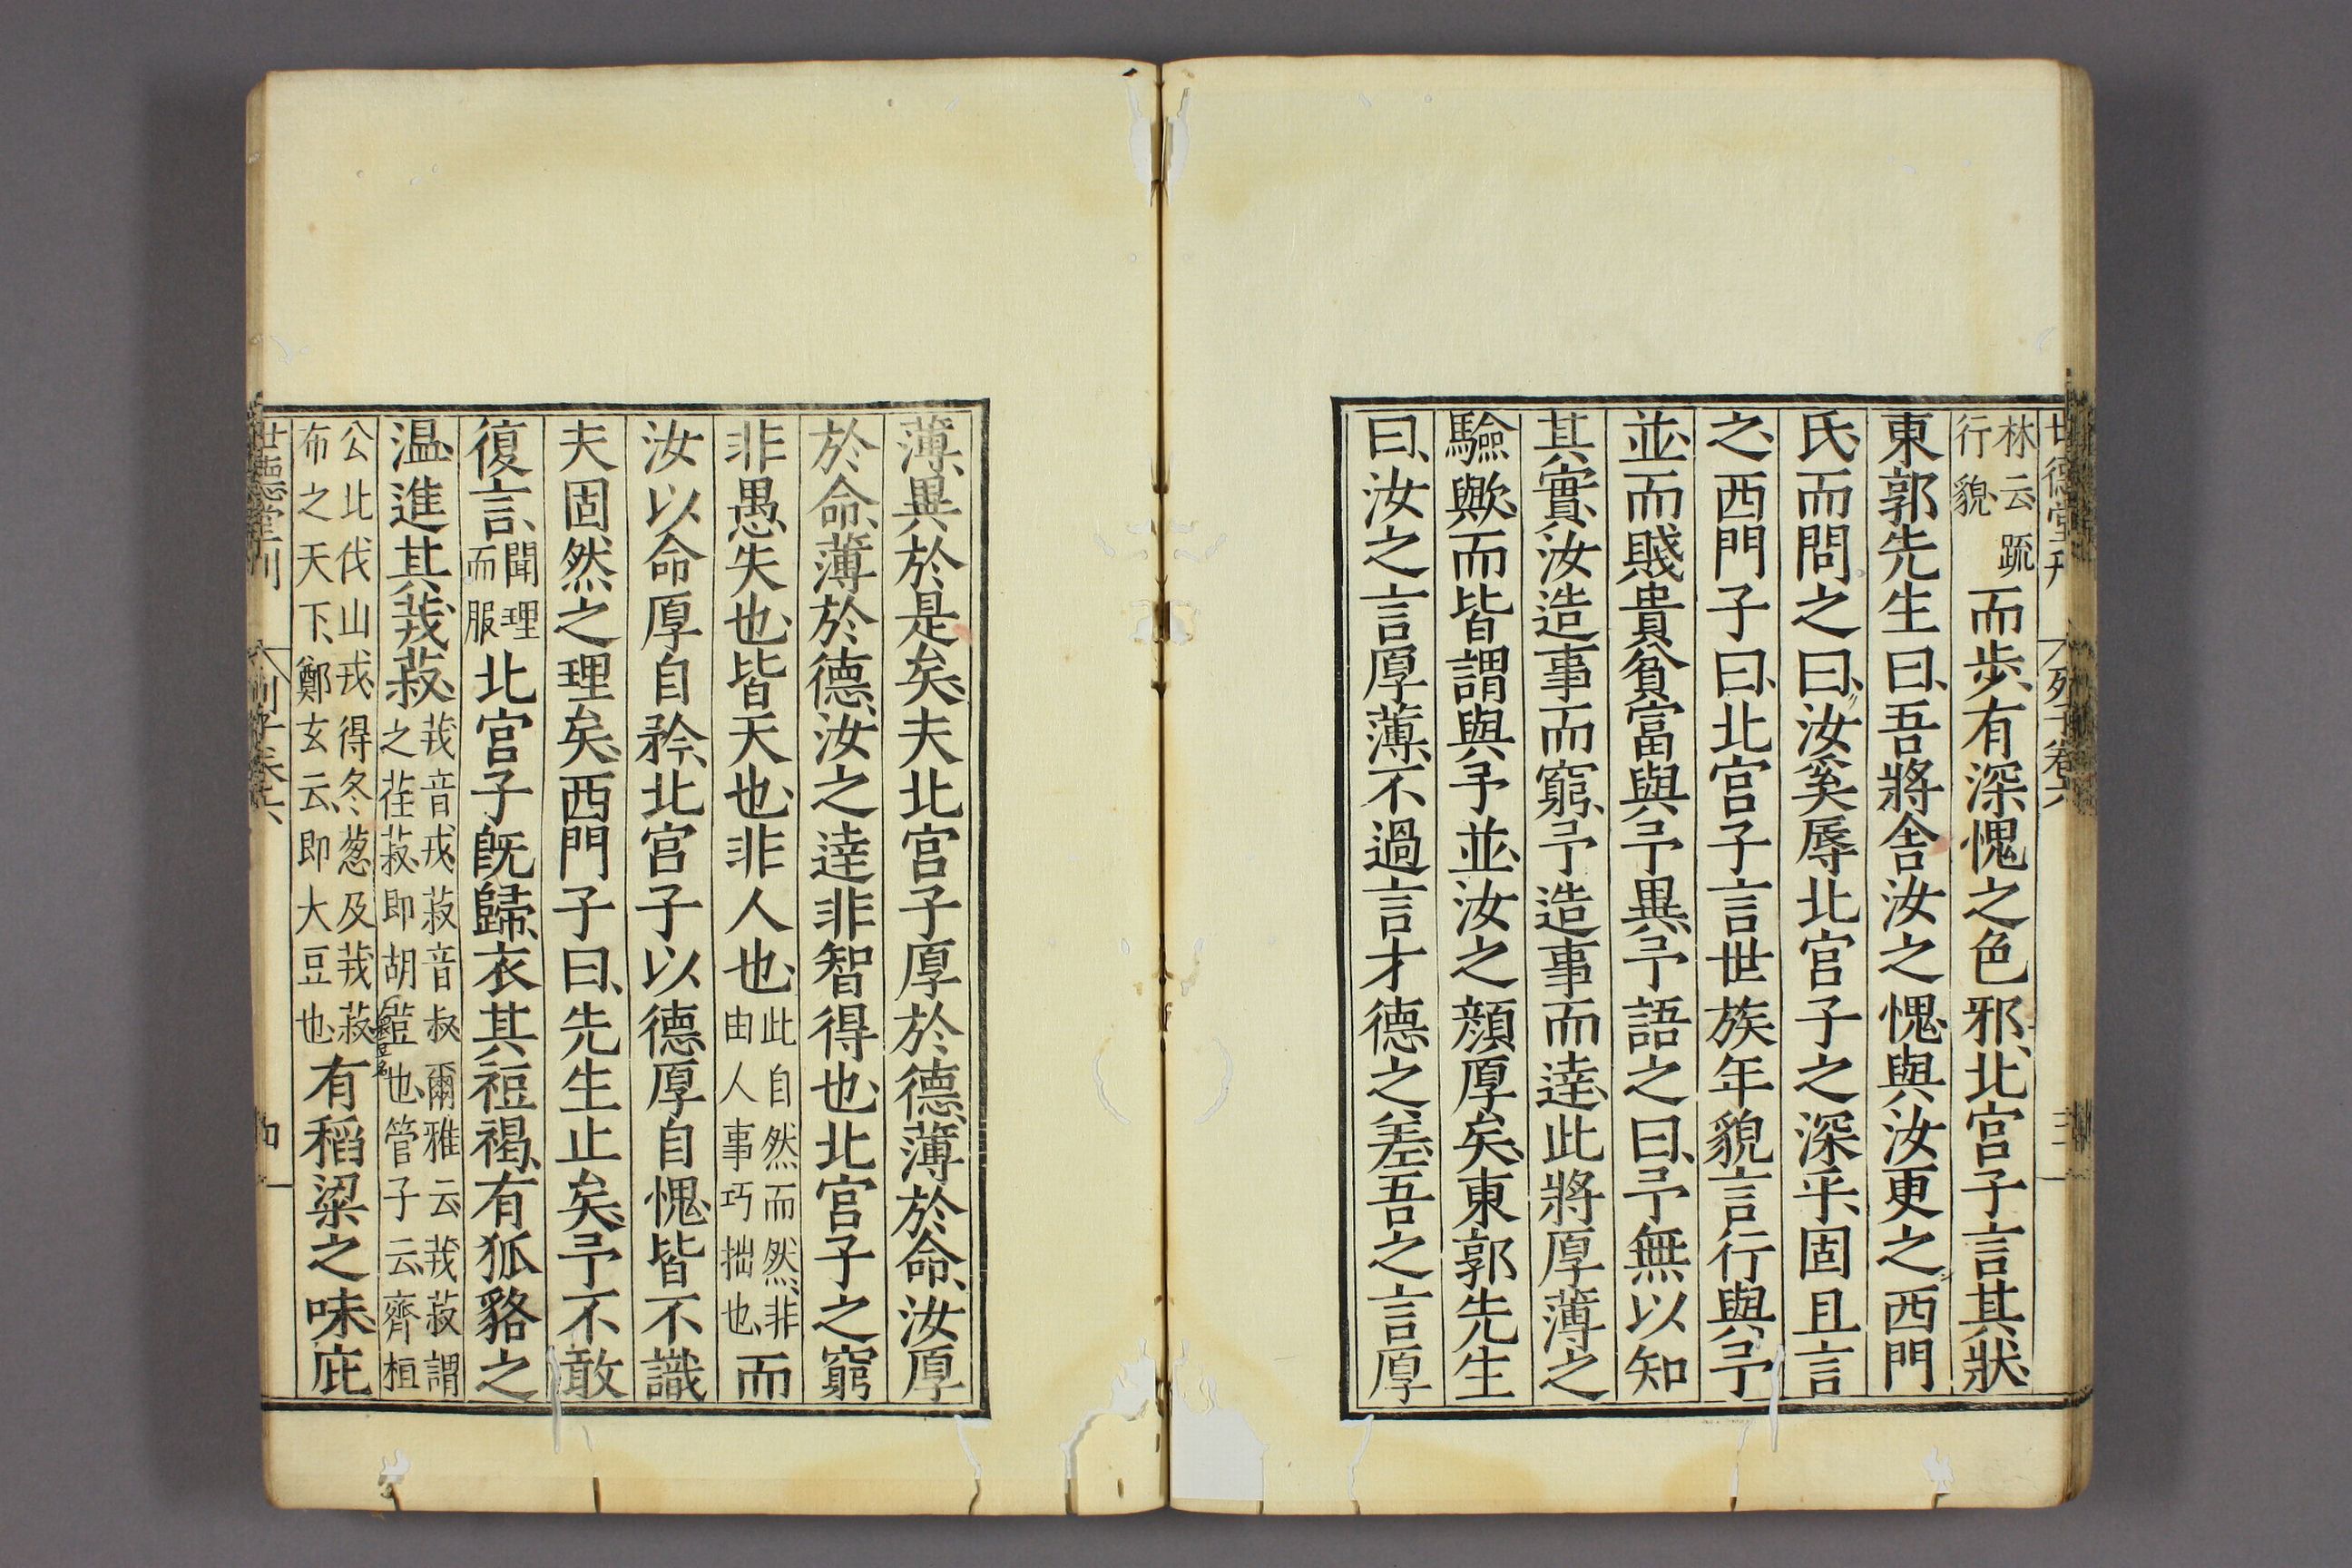 世德堂刊 列子卷六 三
林云疏
行貌
而步有深愧之色邪北宫子言其狀
東郭先生曰吾將舍汝之愧與汝更之西門
氏而問之曰汝奚辱北宫子之深乎固且言
之西門子曰北宫子言世族年貌言行與予
並而賤貴貧富與予異予語之曰予無以知
其實汝造事而窮予造事而逹此將厚薄之
驗歟而皆謂與予並汝之顔厚矣東郭先生
曰汝之言厚薄不過言才德之差吾之言厚
薄異於是矣夫北宫子厚於德薄於命汝厚
於命薄於德汝之逹非智得也北宫子之窮
非愚失也皆天也非人也
此自然而然非
由人事巧拙也
而
汝以命厚自矜北宫子以德厚自愧皆不識
夫固然之理矣西門子曰先生止矣予不敢
復言
聞理
而服
北宫子既歸衣其裋褐有狐貉之
温進其茙菽
茙音戎菽音叔爾雅云茙菽謂
之荏菽即胡䇺也管子云齊桓
公北伐山戎得冬葱及茙菽
布之天下鄭玄云即大豆也
有稻粱之味庇
世德堂刊 列子卷六 四